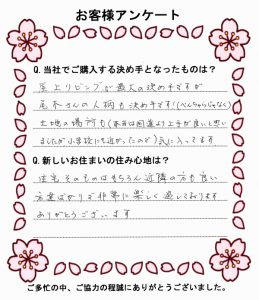 お客様アンケート
Q.当社でご購入する決め手となったものは？
屋上リビングが最大の決め手ですが
尾木さんの人柄も決め手です!(べんちゃらじゃなく)
土地の場所も(本当は国道より上手が良いと思い
ましたが小学校にも近かったので)気に入ってます
Q.新しいお住まいの住み心地は？
住宅そのものはもちろん近隣の方も良い
方達ばかりで非常に楽しく過しております
ありがとうございます
ご多忙の中、ご協力の程誠にありがとうございました。